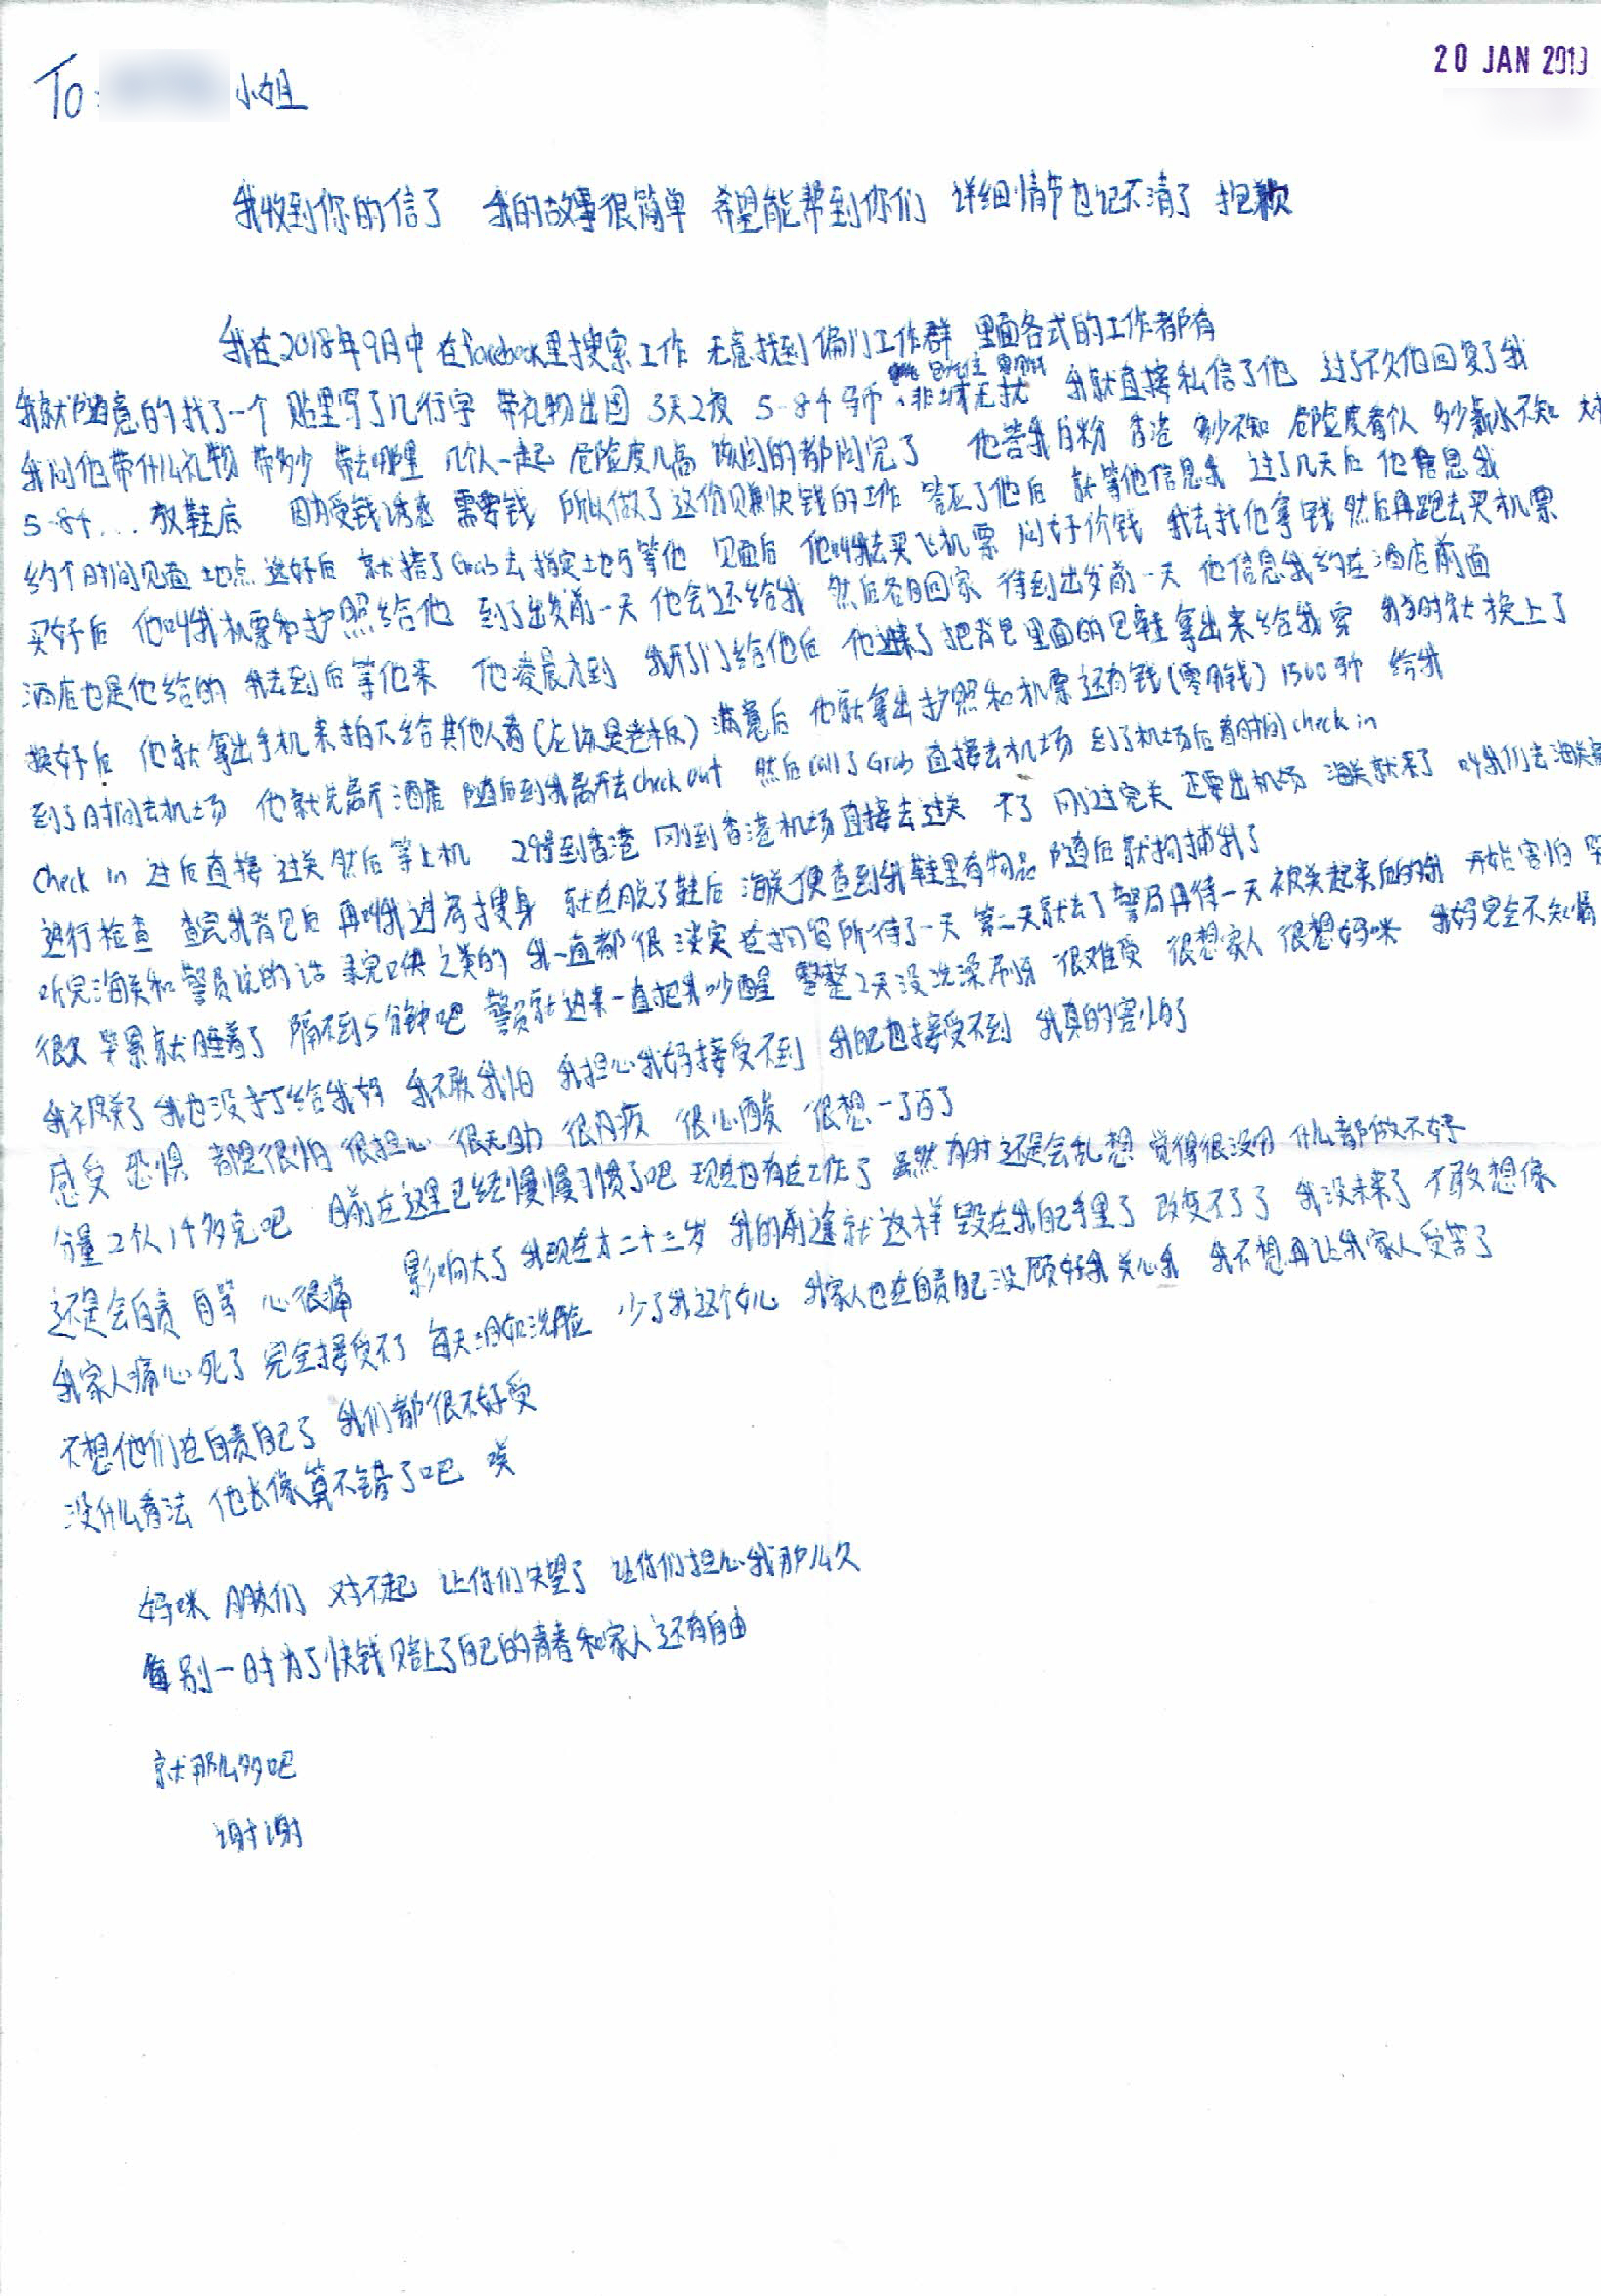 20 JAN 2019
To: 小姐
我收到你的信了 我的故事很简单 希望能帮到你们 详细情节也记不清了 抱歉
我在2018年9月中 在facebook里搜索工作 无意找到偏门工作群 里面各式的工作都有
我就随意的找了一个 贴里写了几行字 带礼物出国 3天2夜 5-8千马币、包吃住 零用钱 非诚无扰 我就直接私信了他 过了不久他回复了我
我问他带什么礼物 带多少 带去哪里 几个人一起 危险度几高 该问的都问完了 他答我白粉 香港 多少不知 危险度看个人 多少薪水不知 大概
5-8千... 放鞋底 因为受钱诱惑 需要钱 所以做了这份赚快钱的工作 答应了他后 就等他信息我 过了几天后 他信息我
约个时间见面 地点选好后 就搭了Grab去指定土地方等他 见面后 他叫我去买飞机票 问好价钱 我去找他拿钱 然后再跑去买机票
买好后 他叫我机票和护照给他 到了出发前一天 他会还给我 然后各自回家 待到出发前一天 他信息我约在酒店前面
酒店也是他给的 我去到后等他来 他凌晨才到 我开了门给他后 他进来了把背包里面的包鞋拿出来给我穿 我当时就换上了
换好后 他就拿出手机来拍下给其他人看(应该是老板) 满意后 他就拿出护照和机票还有钱(零用钱) 1500马币 给我
到了时间去机场 他就先离开酒店 随后到我离开去check out 然后call了Grab 直接去机场 到了机场后看时间check in
Check in 过后直接过关 然后等上机 29号到香港 刚到香港机场直接去过关 刚过完关 还要出机场 海关就来了 叫我们去海关
进行检查 查完我背包后 再叫我进房搜身 就在脱了鞋后 海关便查到我鞋里有物品 随后就拘捕我了
听完海关和警员说的话 录完口供之类的 我一直都很淡定 在拘留所待了一天 第二天就去了警局再待一天 被关起来后的我 开始害怕 哭
很久 哭累就睡着了 隔不到5分钟吧 警员就进来一直把我吵醒 整整2天没洗澡刷牙 很难受 很想家人 很想妈咪 我妈完全不知情
我被关了 我也没打给我妈 我不敢我怕 我担心我妈接受不到 我自己也接受不到 我真的害怕了
感受 恐惧 都是很怕 很担心 很无助 很内疚 很心酸 很想一了百了
分量2个人1千多克吧 目前在这里已经慢慢习惯了吧 现在也有在工作了 虽然有时还是会乱想 觉得很没用 什么都做不好
还是会自责 自骂 心很痛 影响大了 我现在才二十三岁 我的前途就这样毁在我自己手里了 改变不了了 我没未来了 不敢想像
我家人痛心死了 完全接受不了 每天泪如洗脸 少了我这个女儿 我家人也在自责自己没顾好我关心我 我不想再让我家人受苦了
不想他们在自责自己了 我们都很不好受
没什么看法 他长像算不错了吧 唉
妈咪 朋友们 对不起 让你们失望了 让你们担心我那么久
别一时为了快钱赔上了自己的青春和家人还有自由
就那么多吧
谢谢